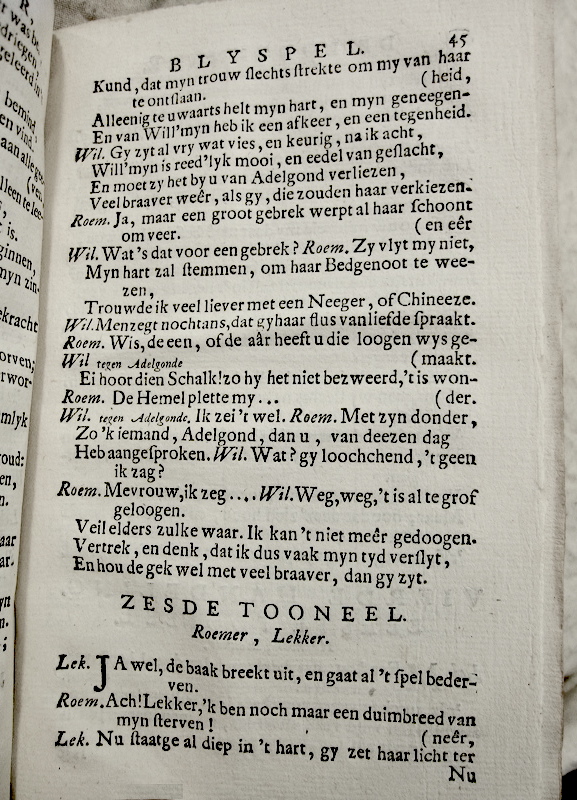 R,
BLYSPEL. 45
Kund, dat myn trouw ſlechts ſtrekte om my van haar
te ontſlaan. (heid,
Alleenig te uwaarts helt myn hart, en myn geneegen-
En van Will'myn heb ik een afkeer, en een tegenheid.
Wil. Gy zyt al vry wat vies, en keurig, na ik acht,
Will'myn is reed'lyk mooi, en eedel van geſlacht,
En moet zy het by u van Adelgond verliezen,
Veel braaver weêr, als gy, die zouden haar verkiezen.
Roem. Ja, maar een groot gebrek werpt al haar ſchoont
om veer. (en eêr
Wil. Wat's dat voor een gebrek? Roem. Zy vlyt my niet,
Myn hart zal ſtemmen, om haar Bedgenoot te wee-
zen,
Trouwde ik veel liever met een Neeger, of Chineeze.
Wil. Men zegt nochtans, dat gy haar ſlus van liefde ſpraakt.
Roem. Wis, de een, of de aâr heeft u die loogen wys ge-
Wil tegen Adelgonde (maakt.
Ei hoor dien Schalk! zo hy het niet bezweerd, 't is won-
Roem. De Hemel plette my... (der.
Wil. tegen Adelgonde. Ik zei 't wel. Roem. Met zyn donder,
Zo 'k iemand, Adelgond, dan u, van deezen dag
Heb aangeſproken. Wil. Wat? gy loochchend, 't geen
ik zag?
Roem. Mevrouw, ik zeg .... Wil. Weg, weg, 't is al te grof
geloogen.
Veil elders zulke waar. Ik kan 't niet meêr gedoogen.
Vertrek, en denk, dat ik dus vaak myn tyd verſlyt,
En hou de gek wel met veel braaver, dan gy zyt.
ZESDE TOONEEL.
Roemer, Lekker.
Lek. JA wel, de baak breekt uit, en gaat al 't ſpel beder-
ven.
Roem. Ach! Lekker, 'k ben noch maar een duimbreed van
myn ſterven! (neêr,
Lek. Nu ſlaatge al diep in 't hart, gy zet haar licht ter
Nu